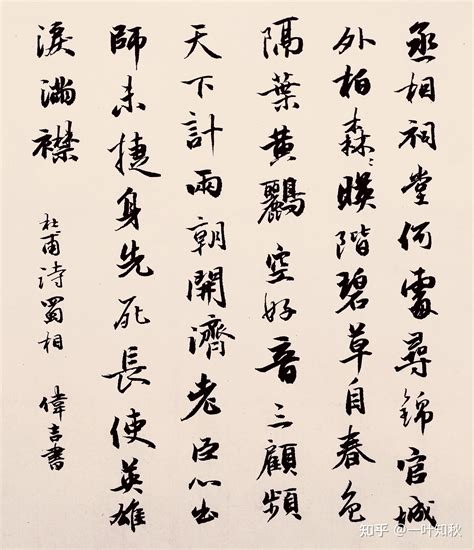 丞相祠堂何處尋錦官城
外柏森々暎階碧草自春色
隔葉黄鸝空好音三顧頻
天下計兩朝開濟老臣心出
師未捷身先死長使英雄
淚滿襟
杜甫詩蜀相 偉吉書
知乎 @一叶知秋